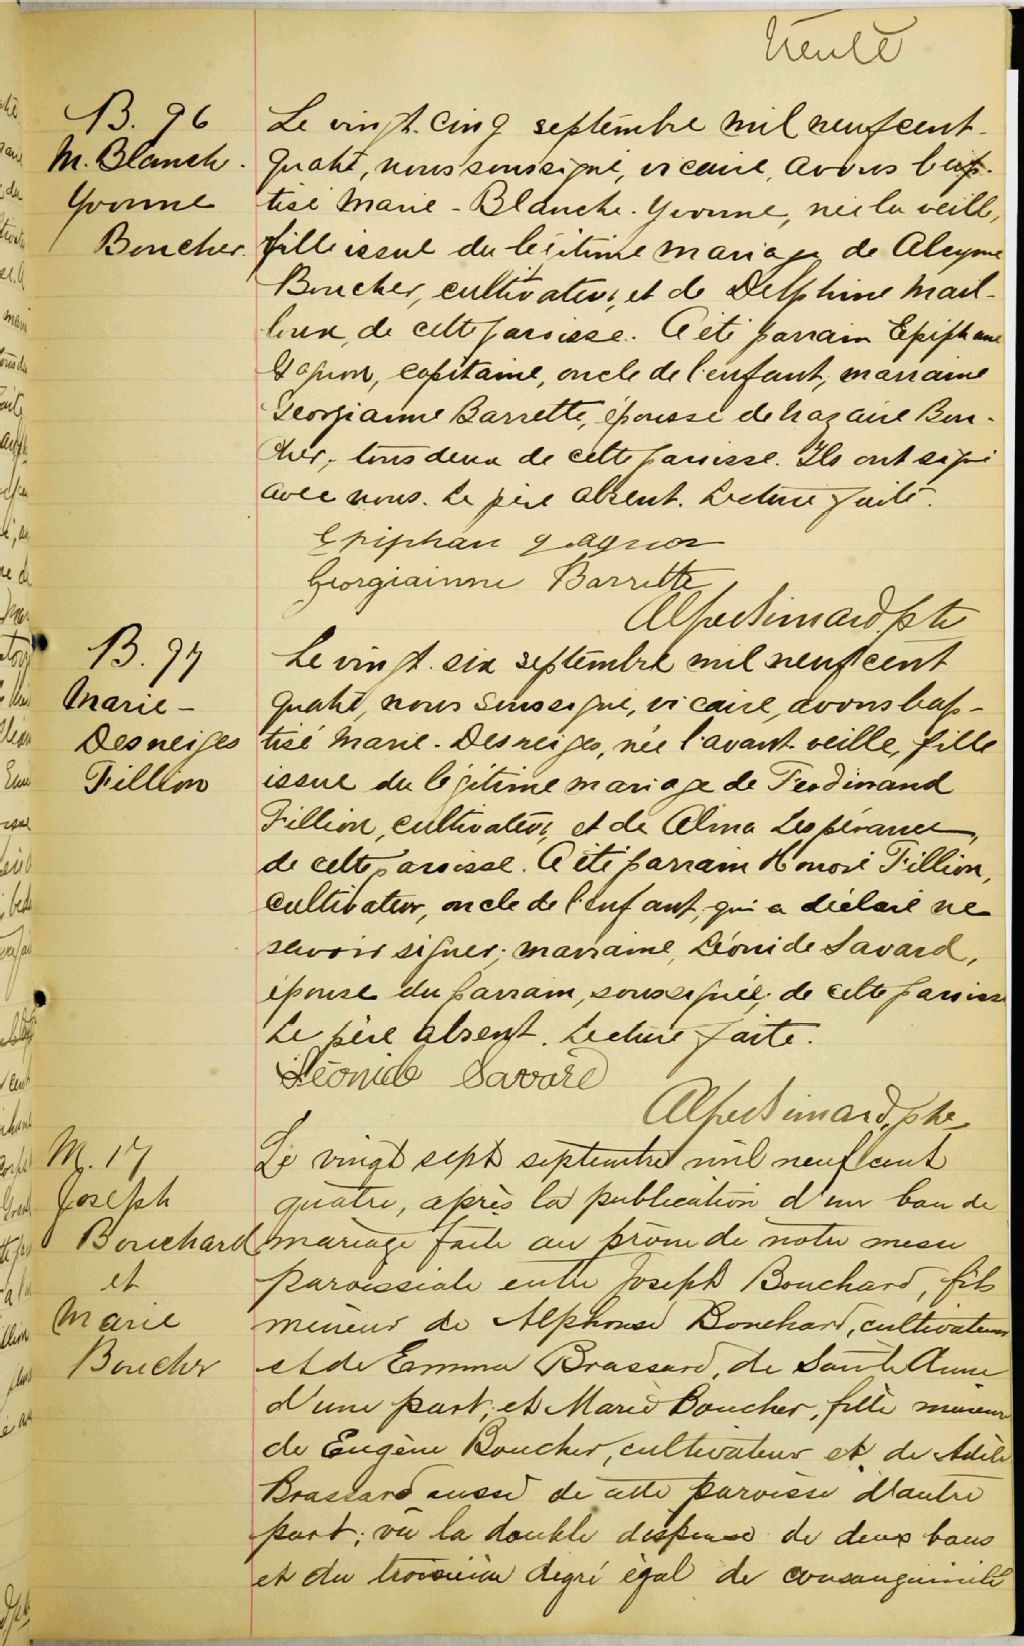 Trente
B. 96
M. Blanch.
Yvonne
Boucher.
Le vingt-cinq septembre mil neuf cent-
quatre, nous soussigné, vicaire, avons bap-
tisé Marie-Blanche-Yvonne, née la veille,
fille issue du légitime mariage de Alcyme
Boucher, cultivateur, et de Delphine Mail-
loux, de cette paroisse. A été parrain Epiphane
Gagnon, capitaine, oncle de l'enfant; marraine
Georgianne Barrette, épouse de Nazaire Bou-
cher; tous deux de cette paroisse. Ils ont signé
avec nous. Le père absent. Lecture faite.
Epiphan gagnon
Georgiainne Barrette
Alfred Simard, ptre
B. 97
Marie-
Desneiges
Fillion
Le vingt-six septembre mil neuf cent
quatre, nous soussigné, vicaire, avons bap-
tisé Marie-Desneiges, née l'avant-veille, fille
issue du légitime mariage de Ferdinand
Fillion, cultivateur, et de Alma Lespérance,
de cette paroisse. A été parrain Honoré Fillion,
cultivateur, oncle de l'enfant, qui a déclaré ne
savoir signer; marraine, Léonide Savard,
épouse du parrain, soussignée; de cette paroisse
Le père absent. Lecture faite.
Léonide Savard
Alfred Simard, ptre
M. 17
Joseph
Bouchard
et
Marie
Boucher
Le vingt sept septembre mil neuf cent
quatre, après la publication d'un ban de
mariage faite au prône de notre messe
paroissiale entre Joseph Bouchard, fils
mineur de Alphonse Bouchard, cultivateur
et de Emma Brassard, de Sainte Anne
d'une part; et Marie Boucher, fille mineure
de Eugène Boucher, cultivateur et de Adèle
Brassard aussi de cette paroisse d'autre
part; vu la double dispense de deux bans
et du troisième degré égal de consanguinité